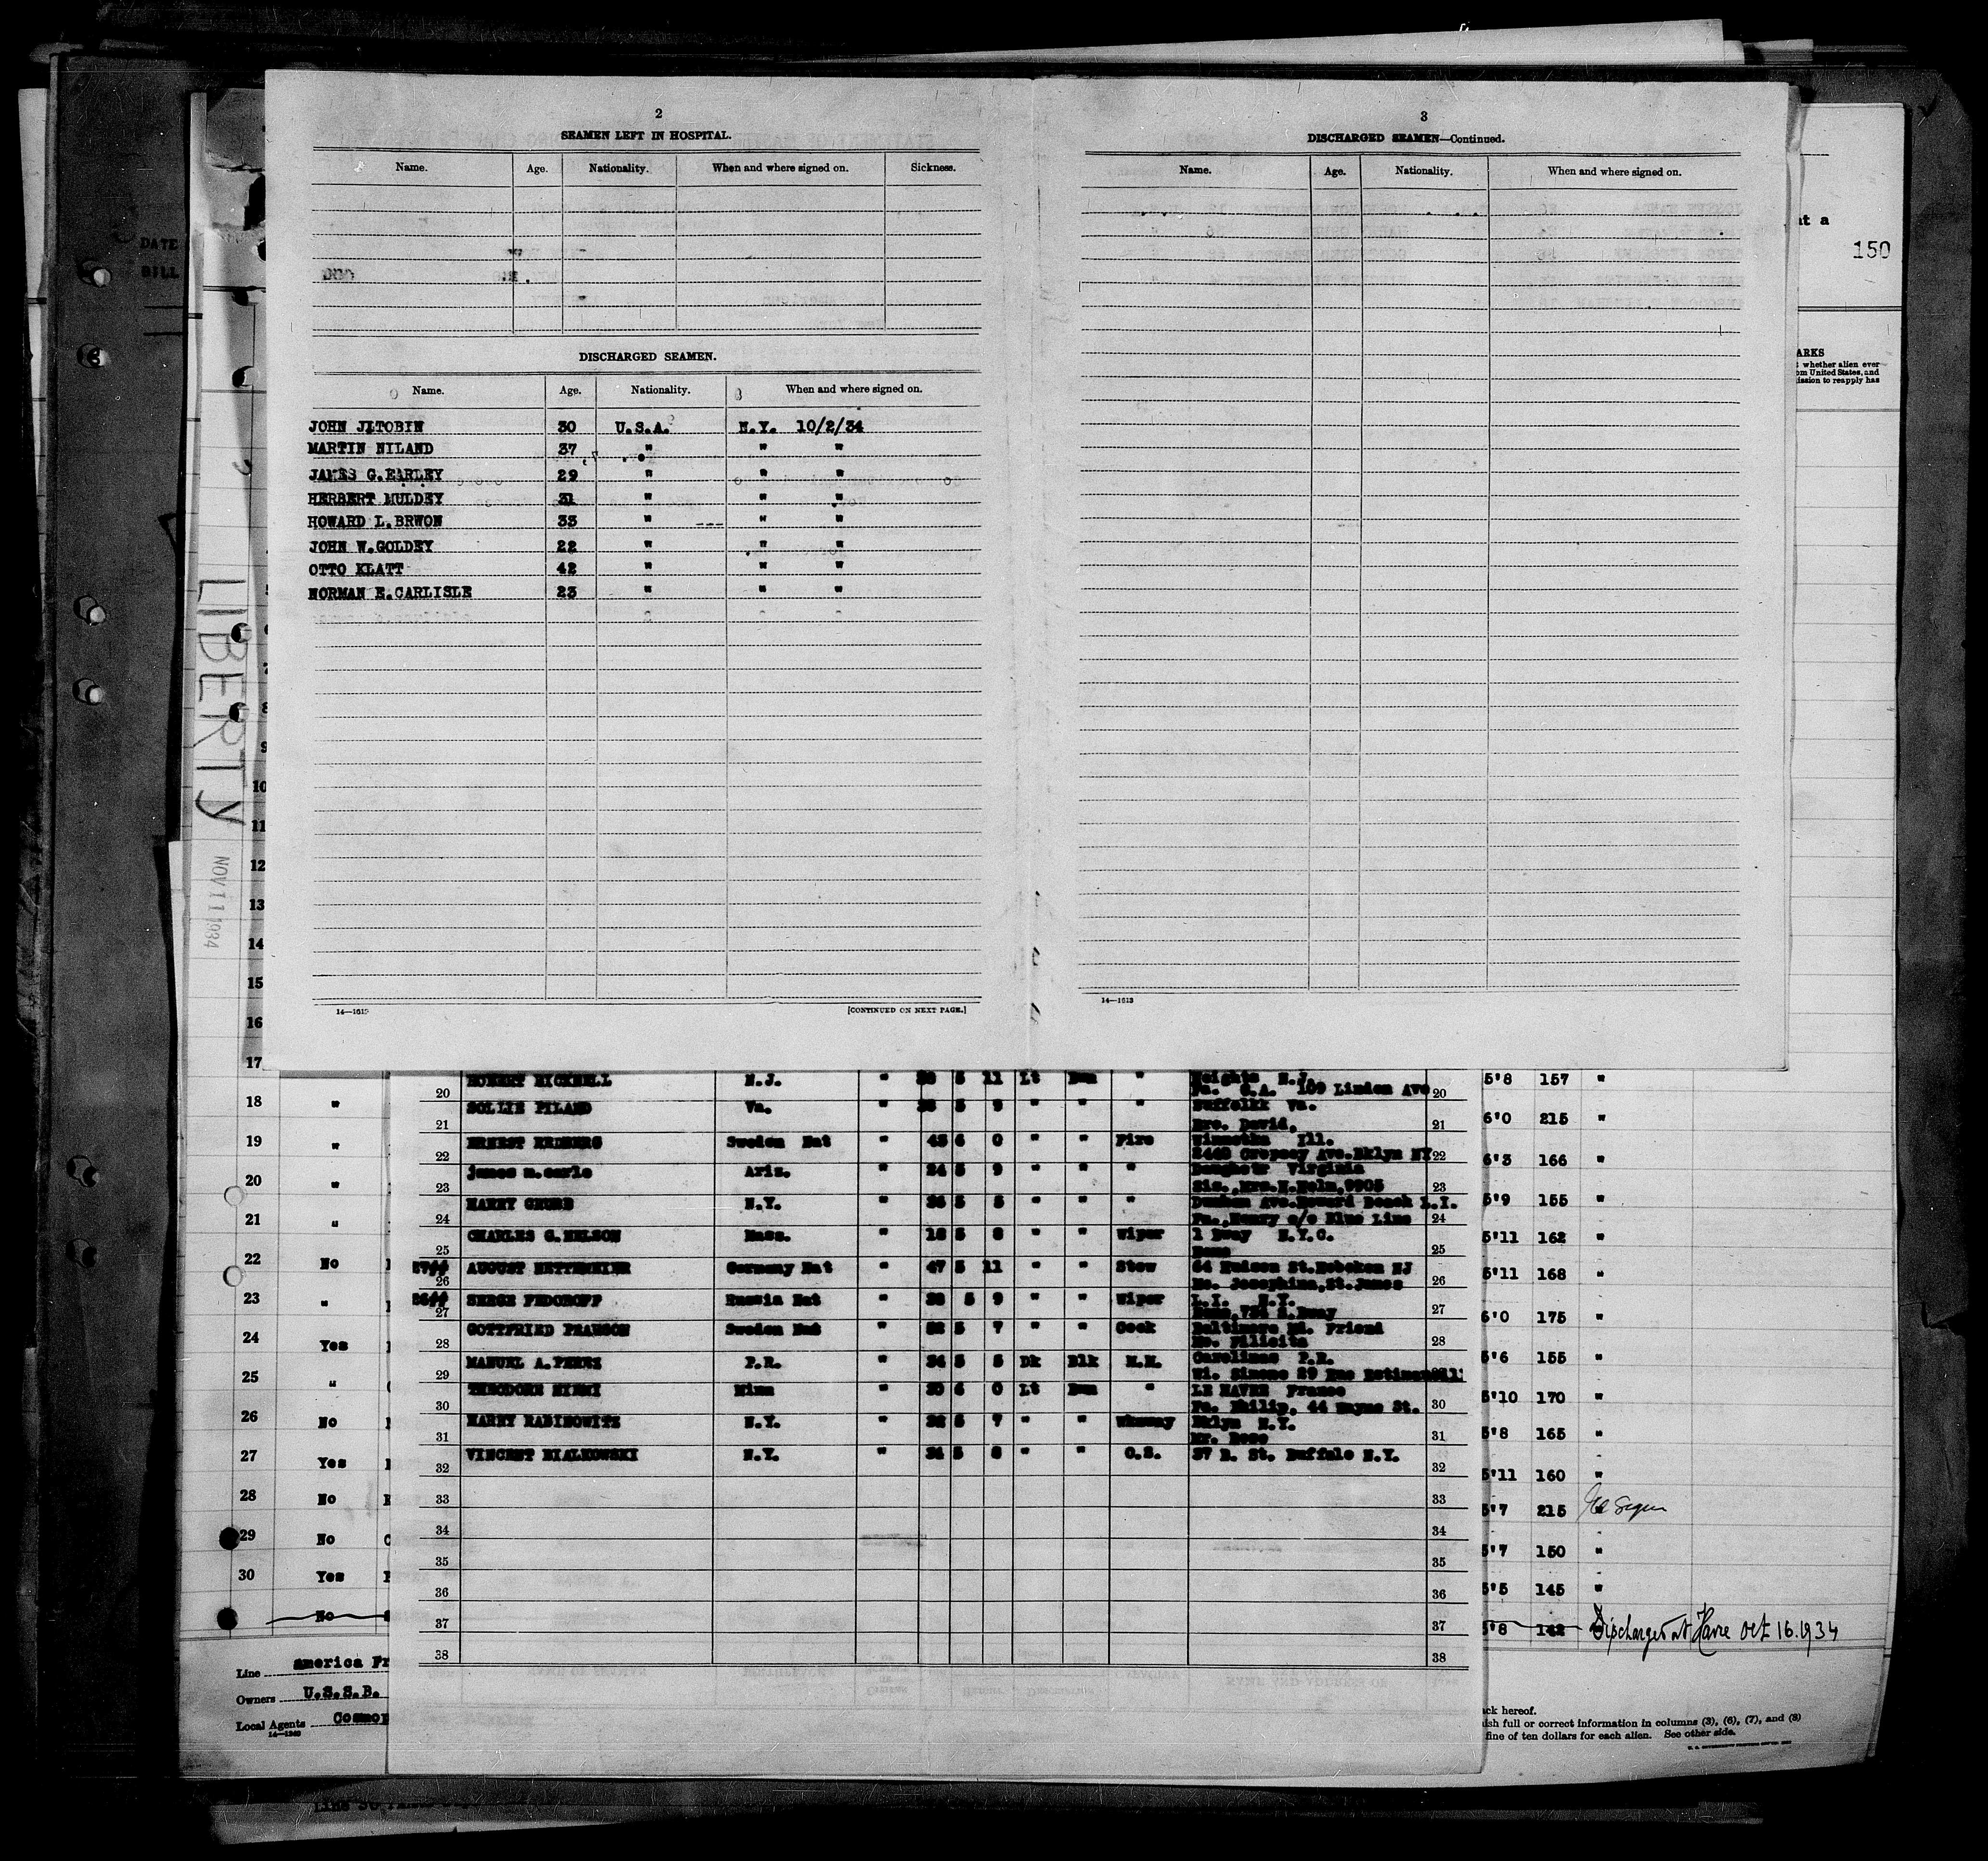 2
SEAMEN LEFT IN HOSPITAL.
Name. Age. Nationality. When and where signed on. Sickness.
DISCHARGED SEAMEN.
Name. Age. Nationality. When and where signed on.
JOHN J.TOBIN 30 U.S.A. N.Y. 10/2/34
MARTIN NILAND 37 " " "
JAMES G.EARLEY 29 " " "
HERBERT MULDEY 31 " " "
HOWARD L.BRWON 33 " " "
JOHN W.GOLDEY 22 " " "
OTTO KLATT 42 " " "
NORMAN E.CARLISLE 23 " " "
14—1613
[CONTINUED ON NEXT PAGE.]
3
DISCHARGED SEAMEN—Continued.
Name. Age. Nationality. When and where signed on.
14—1613
DATE
BILL
LIBERTY
NOV 11 1934
at a
150
ARKS
whether alien ever
om United States, and
ission to reapply has
9
10
11
12
13
14
15
16
17
18 "
19 "
20 "
21 "
22 No
23 "
24 Yes
25 "
26 No
27 Yes
28 No
29 No
30 Yes
No
Line America Fr
Owners U.S.S.B.
Local Agents Cosmop
14—1240
ROBERT BICKNELL N.J. " 5 11 Lt Bwn " Heights N.J.
20 Fa. G.A. 109 Linden Ave 20
SOLLIE PILAND Va. " 5 9 " " " Suffolkk Va.
21 Bro. David, 21
ERNEST Sweden Nat " 45 6 0 " " Fire Winnetka Ill.
22 2440 Cropsey Ave.Bklyn NY 22
james m.earle Ariz. " 24 5 9 " " " Virginia
23 Sis.,Mrs.H.Holm,9905 23
HARRY GRUBB N.Y. " 26 5 5 " " " Ave.Howard Beach L.I.
24 Fa.,Henry c/o Blue Line 24
CHARLES G.NELSON Mass. " 18 5 8 " " Wiper 1 Bway N.Y.C.
25 None 25
AUGUST Germany Nat " 47 5 11 " " Stew 64 Hudson St.Hoboken NJ
26 Mo. Josephina,St.James 26
SERGE FEDOROFF Russia Nat " 5 9 " " Wiper L.I. N.Y.
27 27
GOTTFRIED PEARSON Sweden Nat " 52 5 7 " " Cook Baltimore Md. Friend
28 Mo. Felicita 28
MANUEL A.PEREZ P.R. " 24 5 5 Dk Blk M.M. Carolinas P.R.
29 Wi. Simone 29 Rue
THEODORE Minn " 6 0 Lt Bwn " LE HAVRE France
30 Fa. Philip, 44 Wayne St. 30
HARRY RABINOWITZ N.Y. " 5 7 " " Wkaway Bklyn N.Y.
31 Mr. Rose 31
VINCENT BIALKOWSKI N.Y. " 24 5 8 " " O.S. 37 B. St. Buffalo N.Y.
32 32
33 33
34 34
35 35
36 36
37 37
38 38
5'8 157 "
6'0 215 "
6'3 166 "
5'9 155 "
5'11 162 "
5'11 168 "
6'0 175 "
5'6 155 "
5'10 170 "
5'8 165 "
5'11 160 "
5'7 215
5'7 150 "
5'5 145 "
5'8 142 Discharged at Havre Oct 16.1934
ack hereof.
ish full or correct information in columns (3), (6), (7), and (8)
fine of ten dollars for each alien. See other side.